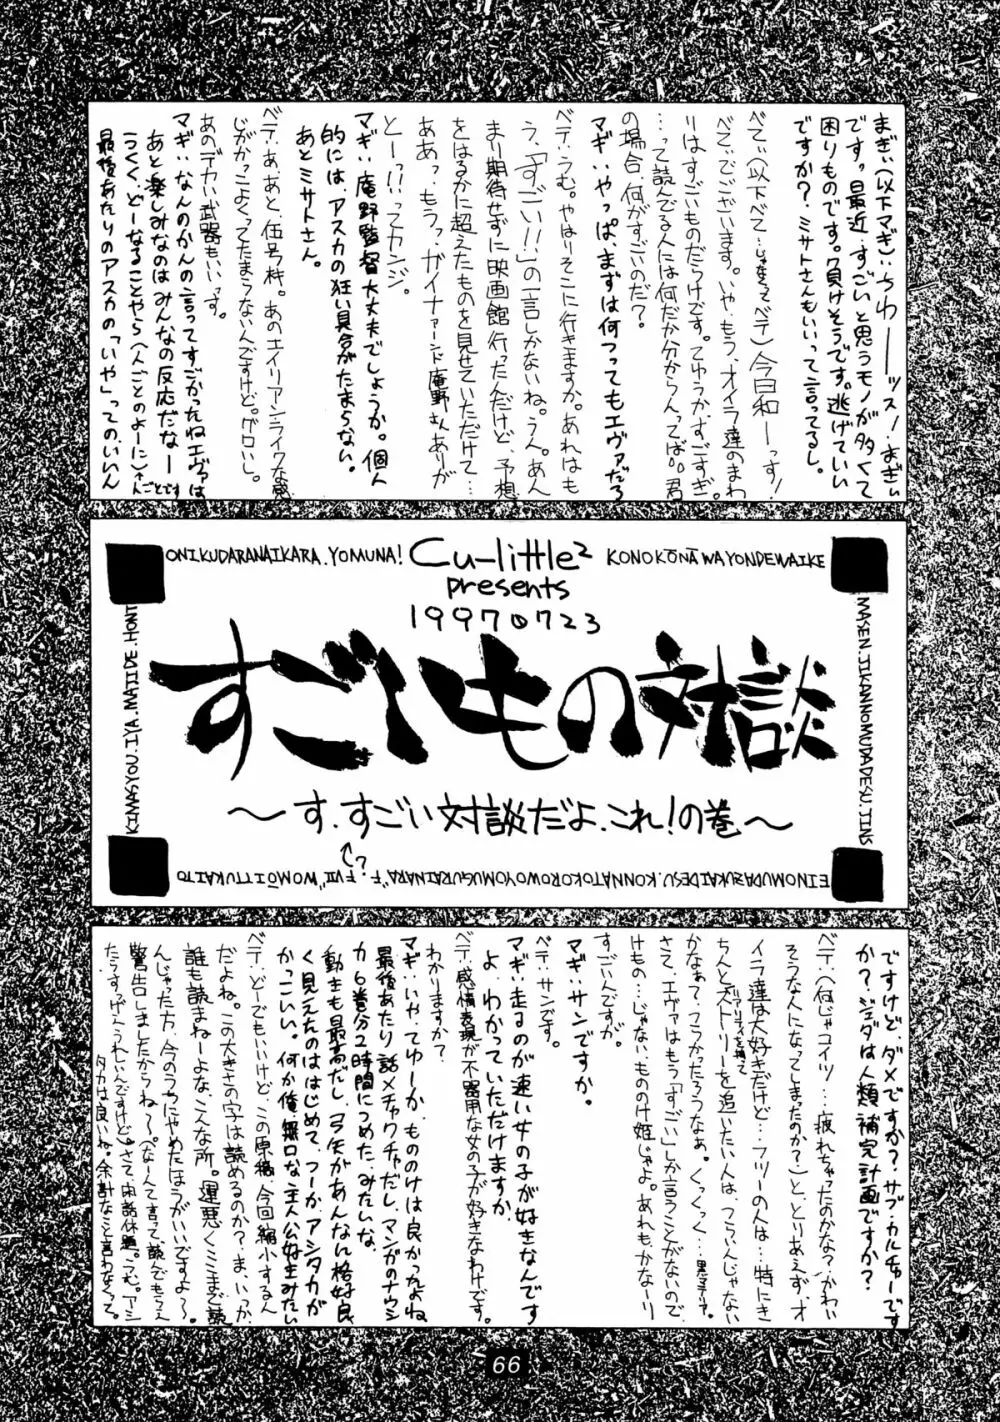 まぎぃ(以下マギ)‥ちわーーッス！まぎぃ
です。最近、すごいと思うモノが多くて
困りものです。負けそうです。逃げていい
ですか？ミサトさんもいいって言ってるし。
べてぃ(以下ベテ‥じゃなくってベテ)今日和ーーっす！
べてぃでございます。いや、もう、オイラ達のまわ
りはすごいものだらけです。てゆうか、すごすぎ。
…って読んでる人には何だか分からんってば。君
の場合、何がすごいのだ？
マギ‥やっぱ、まずは何つってもエヴァだろ
ベテ‥うむ。やはりそこに行きますか。あれはも
う、「すごい！！」の一言しかないね。うん。あん
まり期待せずに映画館行ったんだけど、予想
をはるかに超えたものを見せていただけて…
ああっ、もうっ、ガイナァーンド庵野さんありが
とーっ!!ってカンジ。
マギ‥庵野監督大丈夫でしょうか。個人
的には、アスカの狂い具合がたまらない。
あとミサトさん。
ベテ‥ああと、伍号杵。あのエイリアンライクな感
じがかっこよくってたまらないんですけど。グロいし。
あのデカい武器もいいっす。
マギ‥なんのかんの言ってすごかったねエヴァは
あと楽しみなのはみんなの反応だなー
くっくく、どーなることやら(人ごとのよーに)←人ごとです
最後あたりのアスカの「いや」ってのいいん
ONIKUDARANAIKARA.YOMUNA!
Cu-little²
presents
19970723
KONOKŌNAWAYONDEWAIKE
MASEN.JIKANNOMUDADESU.JINS
EINOMUDAZUKAIDESU.KONNATOKOROWOYOMUGURAINARA"F.FVII"WOMŌITTUKAITO
KIMASYOU.IYA.MAJIDE.HONT
すごいもの対談
～す、すごい対談だよ、これ！の巻～
?
ですけど、ダメですか？サブ・カルチャーです
か？ジェダは人類補完計画ですか？
ベテ‥(何じゃコイツ…疲れちゃったのかな？かわい
そうな人になってしまったのか？)と、とりあえず、オ
イラ達は大好きだけど…フツーの人は…特にき
ちんとストーリーを追いたい人は、つらいんじゃない
かなぁって、フラかったろうなぁ。くっくっく…
さて、エヴァはもう「すごい」しか言うことがないので
けもの…じゃない、もののけ姫じゃよ。あれもかなーり
すごいんですが。
マギ‥サンですか。
ベテ‥サンです。
マギ‥走るのが速い女の子が好きなんです
よ、わかっていただけますか
ベテ‥感情表現が不器用な女の子が好きなわけです。
わかりますか？
マギ‥いや、てゆーか、もののけは良かったよね
最後あたり話メチャクチャだし、マンガのナウシ
カ6巻分2時間につめた、みたいな。
動きも最高だし、弓矢があんなん格好良
く見えたのははじめて、つーか、アシタカが
かっこいい。何か俺、無口な主人公好きみたい
ベテ‥どーでもいいけど、この原稿、今回縮小するん
だよね。この大きさの字は読めるのか？ま、いっか、
誰も読まねーよな、こんな所。運悪くここまで読
んじゃった方、今のうちにやめたほうがいいですよ～。
警告しましたからね～。(なーんて言って、読んでもらえ
たらすっげーうれしいんですけど)さて、閑話休題。うむ。アシ
タカは良いね。余計なこと言わなくて。
66